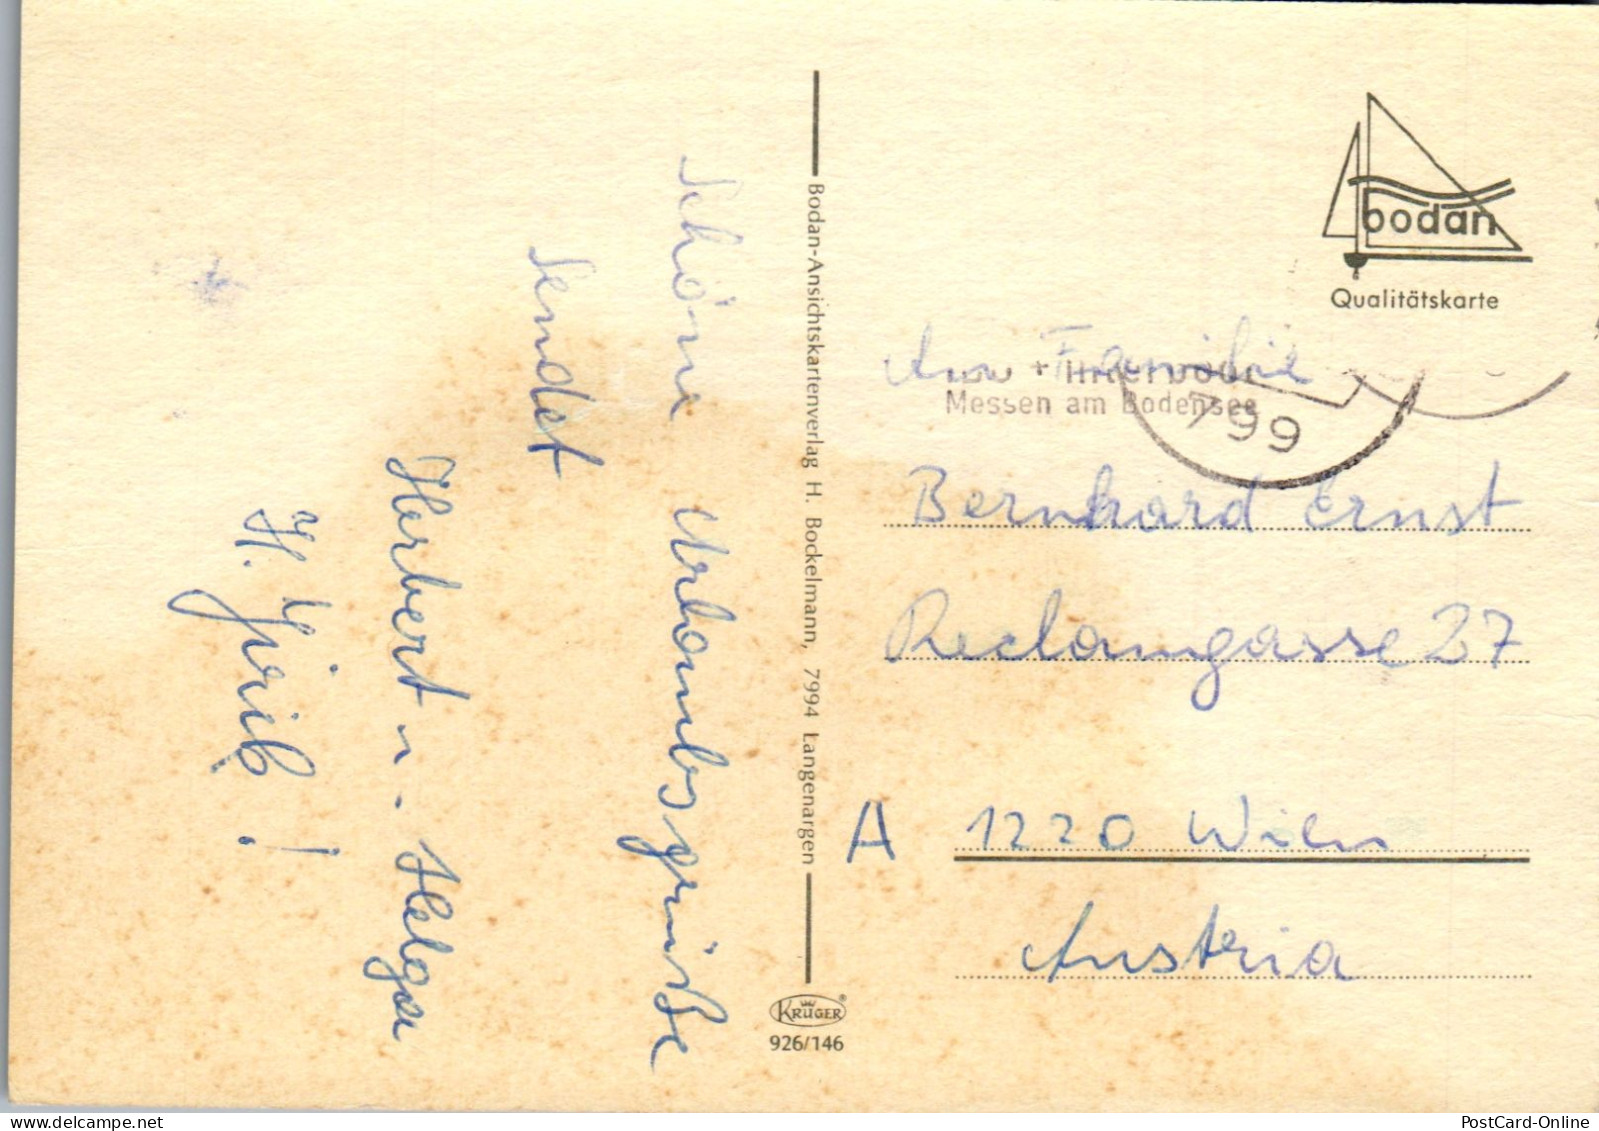 Schöne Urlaubsgrüße
Sendet
Herbert u. Helga
Bodan-Ansichtskartenverlag H. Bockelmann, 7994 Langenargen
KRÜGER
926/146
bodan
Qualitätskarte
An Familie
Messen am Bodensee
799
Bernhard Ernst
Reclamgasse 27
A 1220 Wien
Austria
PostCard-Online